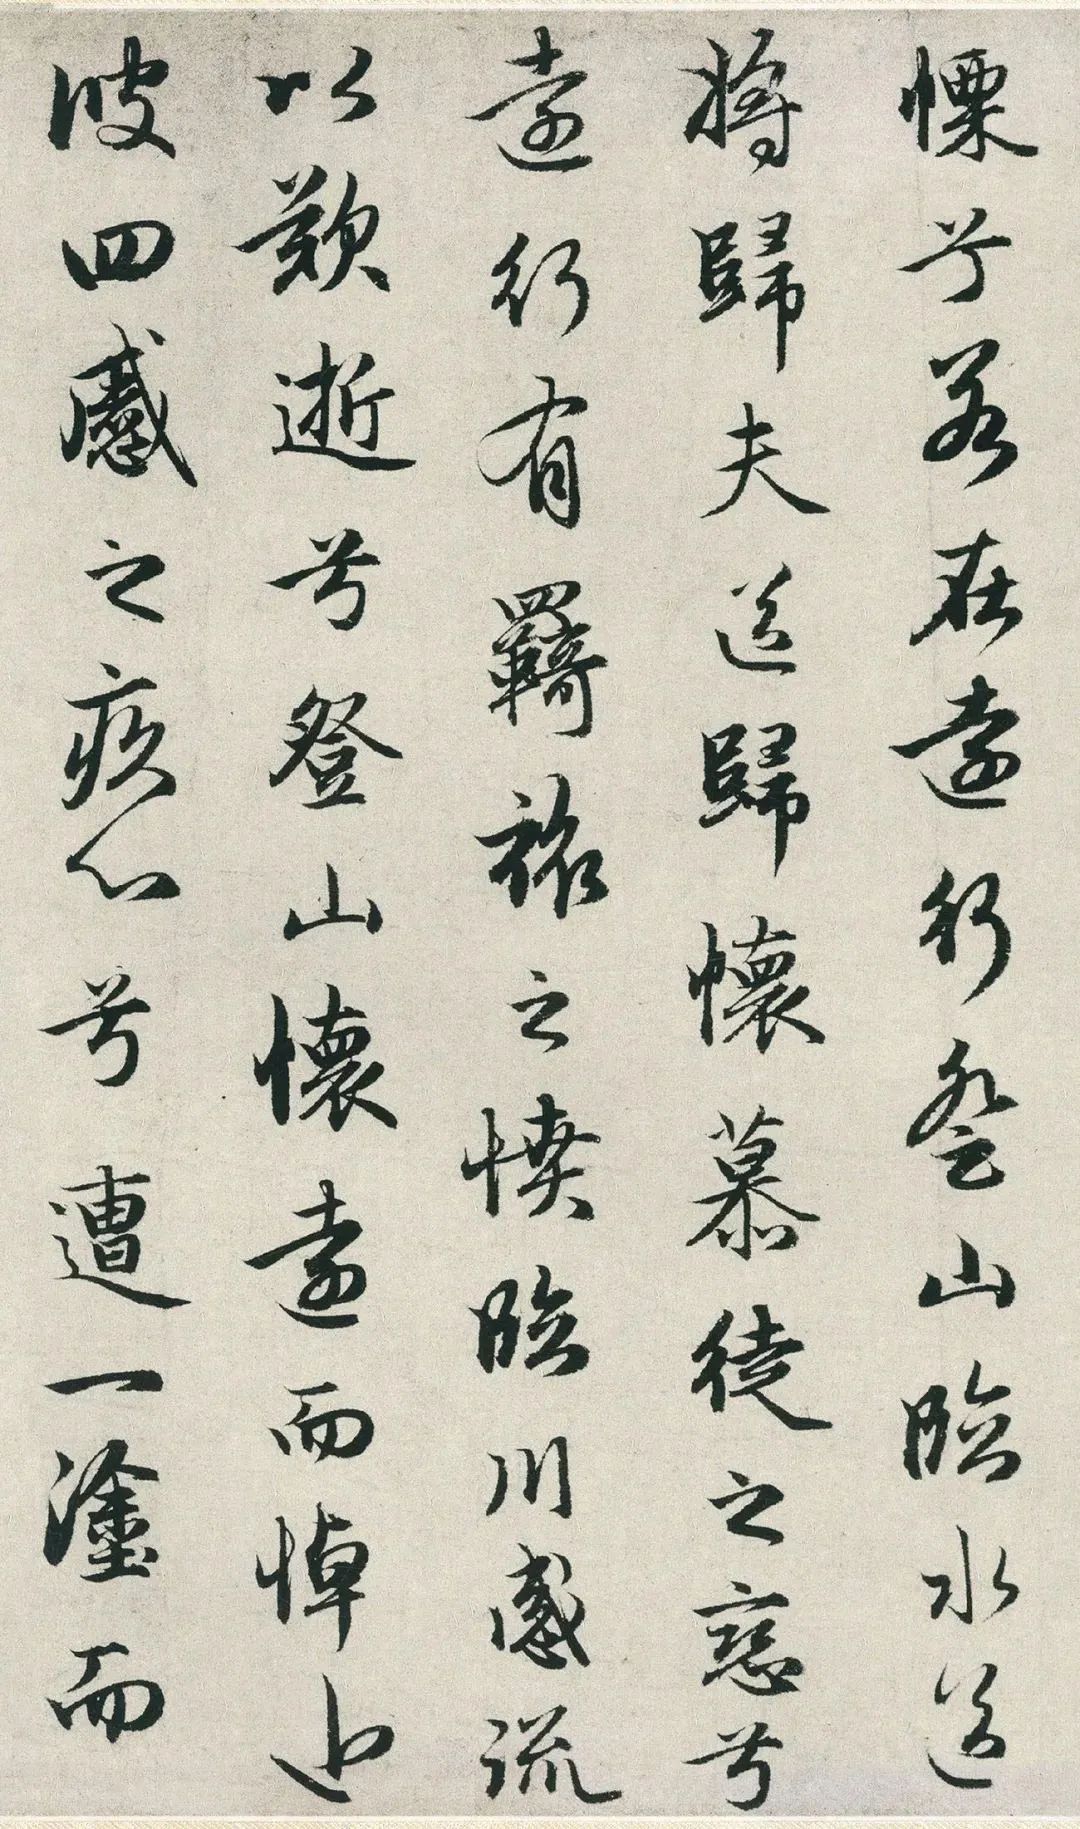 慄兮若在遠行登山臨水送
將歸夫送歸懷慕徒之戀兮
遠行有羈旅之憤臨川感流
以歎逝兮登山懷遠而悼近
彼四慼之疚心兮遭一塗而